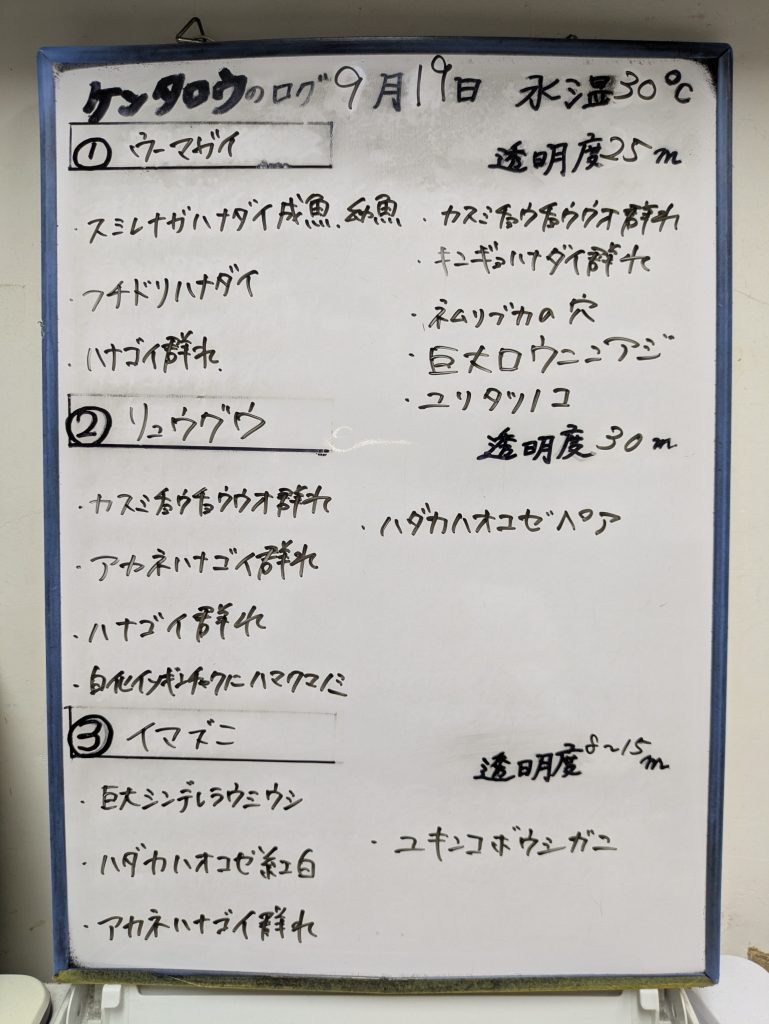 ケンタロウのログ 9月19日 水温30℃
① ウーマガイ
透明度25m
・スミレナガハナダイ成魚、幼魚
・フチドリハナダイ
・ハナゴイ群れ
・カスミチョウチョウウオ群れ
・キンギョハナダイ群れ
・ネムリブカの穴
・巨大ロウニンアジ
・ユリタツノコ
② リュウグウ
透明度30m
・カスミチョウチョウウオ群れ
・アカネハナゴイ群れ
・ハナゴイ群れ
・白化イソギンチャクにハマクマノミ
・ハダカハオコゼペア
③ イマズニ
透明度8~15m
・巨大シンデレラウミウシ
・ハダカハオコゼ紅白
・アカネハナゴイ群れ
・ユキンコボウシガニ